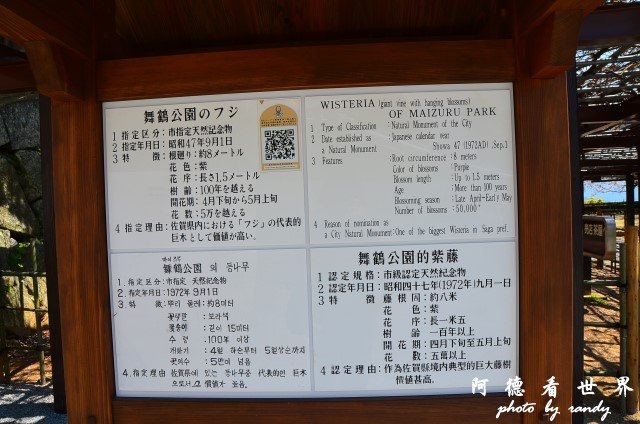 舞鶴公園のフジ
1 指定区分：市指定天然記念物
2 指定年月日：昭和47年9月1日
3 特　　徴：根廻り：約8メートル
花　色：紫
花　序：長さ1.5メートル
樹　齢：100年を越える
開花期：4月下旬から5月上旬
花　数：5万を越える
4 指定理由：佐賀県内における「フジ」の代表的
巨木として価値が高い。
WISTERIA (giant vine with hanging blossoms)
OF MAIZURU PARK
1 Type of Classification : Natural Monument of the City
2 Date established as : Japanese calendar year
a Natural Monument Showa 47 (1972AD) ,Sep.1
3 Features
:Root circumference : 8 meters
Color of blossoms : Purple
Blossom length : Up to 1.5 meters
Age : More than 100 years
Blossoming season : Late April-Early May
Number of blossoms : 50,000+
4 Reason of nomination as
a City Natural Monument : One of the biggest Wisteria in Saga pref.
舞鶴公園 의 등나무
1. 指定区分：市指定 天然紀念物
2. 指定年月日：1972年 9月1日
3 特　徴：뿌리 둘레：約8미터
꽃생깔 : 보라색
꽃송이 : 길이 15미터
수 령 : 100年 이상
개화기 : 4월 하순부터 5월상순까지
꽃의수 : 5만이 넘음
4. 指定理由 佐賀県에 있는 등나무중 代表的인 巨木
으로서 価値가 높음.
舞鶴公園的紫藤
1 認定規格：市級認定天然紀念物
2 認定年月日：昭和四十七年(1972年)九月一日
3 特　　徴 藤根周：約八米
花　色：紫
花　序：長一米五
樹　齢：一百年以上
開花期：四月下旬至五月上旬
花　数：五萬以上
4 認定理由：作為佐賀縣境内典型的巨大藤樹
價値甚高。
阿德看世界
photo by randy